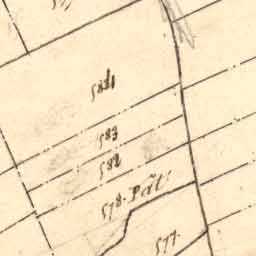 584
583
582
578. Pãt:
577.